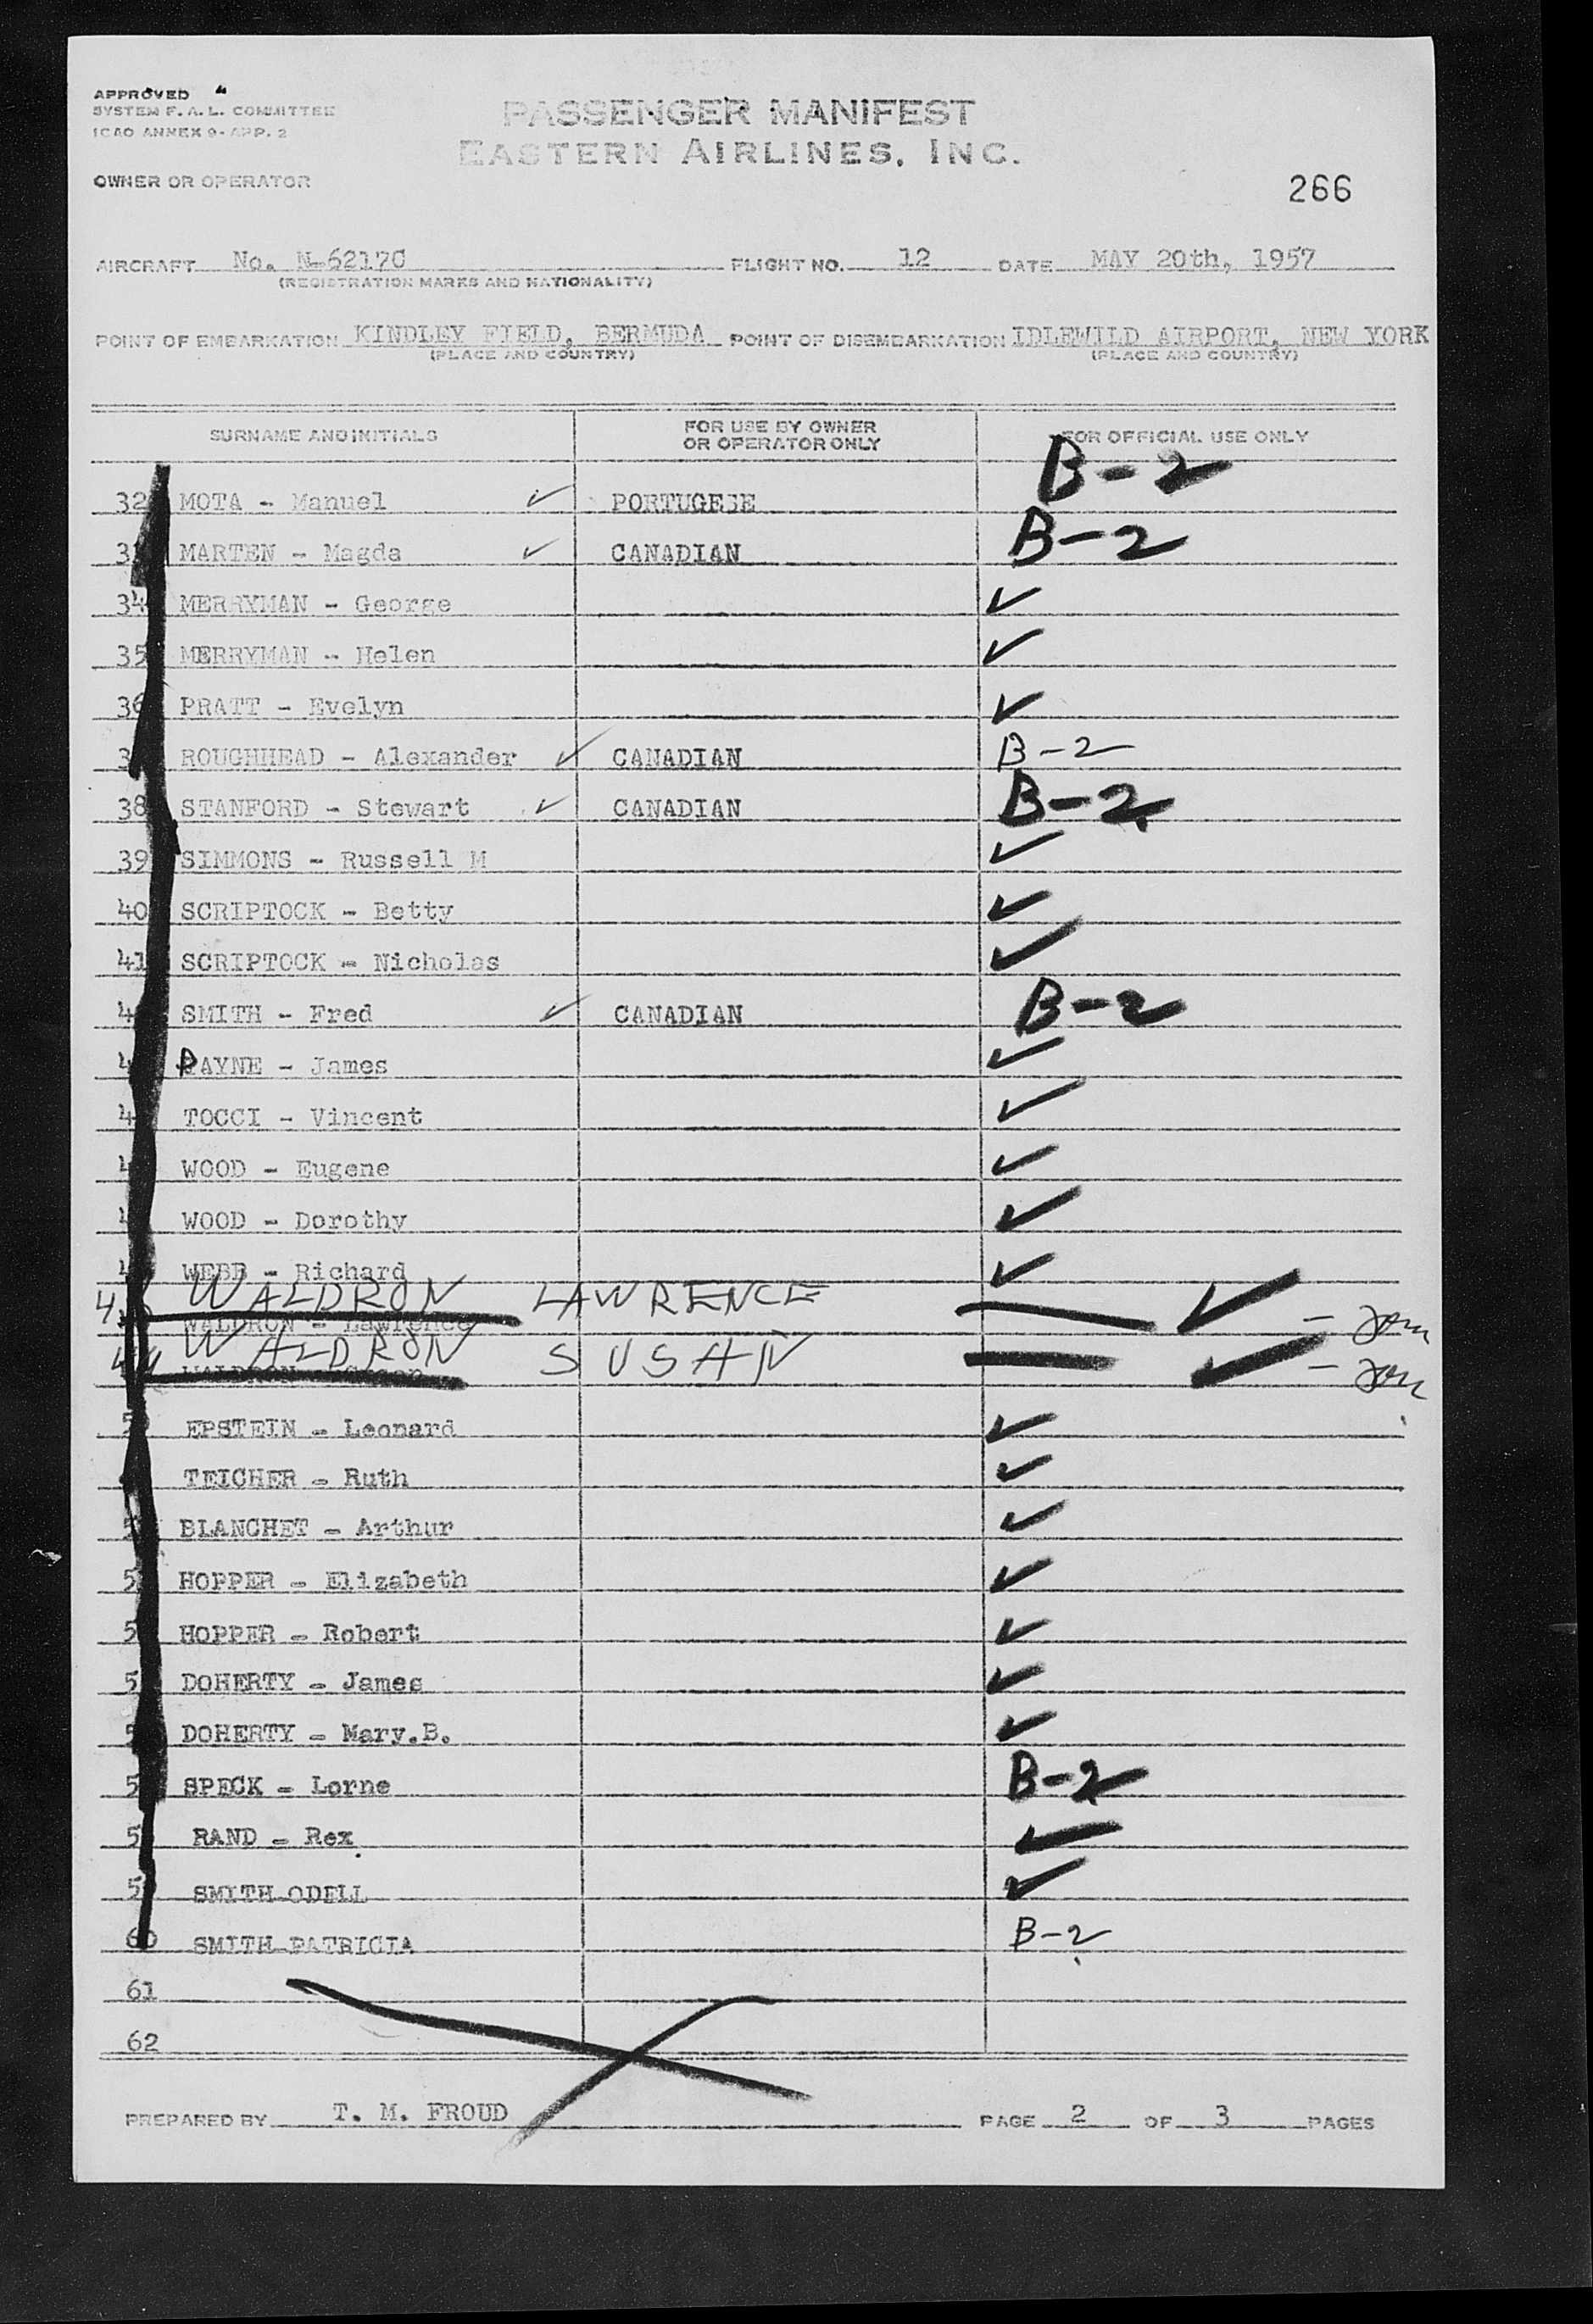 APPROVED
SYSTEM F. A. L. COMMITTEE
ICAO ANNEX 9 - APP. 2
PASSENGER MANIFEST
EASTERN AIRLINES, INC.
OWNER OR OPERATOR
266
AIRCRAFT No. N-6217C FLIGHT NO. 12 DATE MAY 20th, 1957
(REGISTRATION MARKS AND NATIONALITY)
POINT OF EMBARKATION KINDLEY FIELD, BERMUDA POINT OF DISEMBARKATION IDLEWILD AIRPORT, NEW YORK
(PLACE AND COUNTRY) (PLACE AND COUNTRY)
SURNAME AND INITIALS FOR USE BY OWNER OR OPERATOR ONLY FOR OFFICIAL USE ONLY
32 MOTA - Manuel ✓ PORTUGESE B-2
3 MARTEN - Magda ✓ CANADIAN B-2
34 MERRYMAN - George ✓
35 MERRYMAN - Helen ✓
36 PRATT - Evelyn ✓
3 ROUGHHEAD - Alexander ✓ CANADIAN B-2
38 STANFORD - Stewart ✓ CANADIAN B-2
39 SIMMONS - Russell M ✓
40 SCRIPTOCK - Betty ✓
41 SCRIPTOCK - Nicholas ✓
4 SMITH - Fred ✓ CANADIAN B-2
4 PAYNE - James ✓
4 TOCCI - Vincent ✓
4 WOOD - Eugene ✓
4 WOOD - Dorothy ✓
4 WEBB - Richard ✓
4 WALDRON LAWRENCE ✓
WALDRON - Lawrence
4 WALDRON SUSAN ✓
5 EPSTEIN - Leonard ✓
TEICHER - Ruth ✓
5 BLANCHET - Arthur ✓
5 HOPPER - Elizabeth ✓
5 HOPPER - Robert ✓
5 DOHERTY - James ✓
5 DOHERTY - Mary.B. ✓
5 SPECK - Lorne B-2
5 RAND - Rex ✓
5 SMITH ODELL ✓
60 SMITH PATRICIA B-2
61
62
PREPARED BY T. M. FROUD PAGE 2 OF 3 PAGES